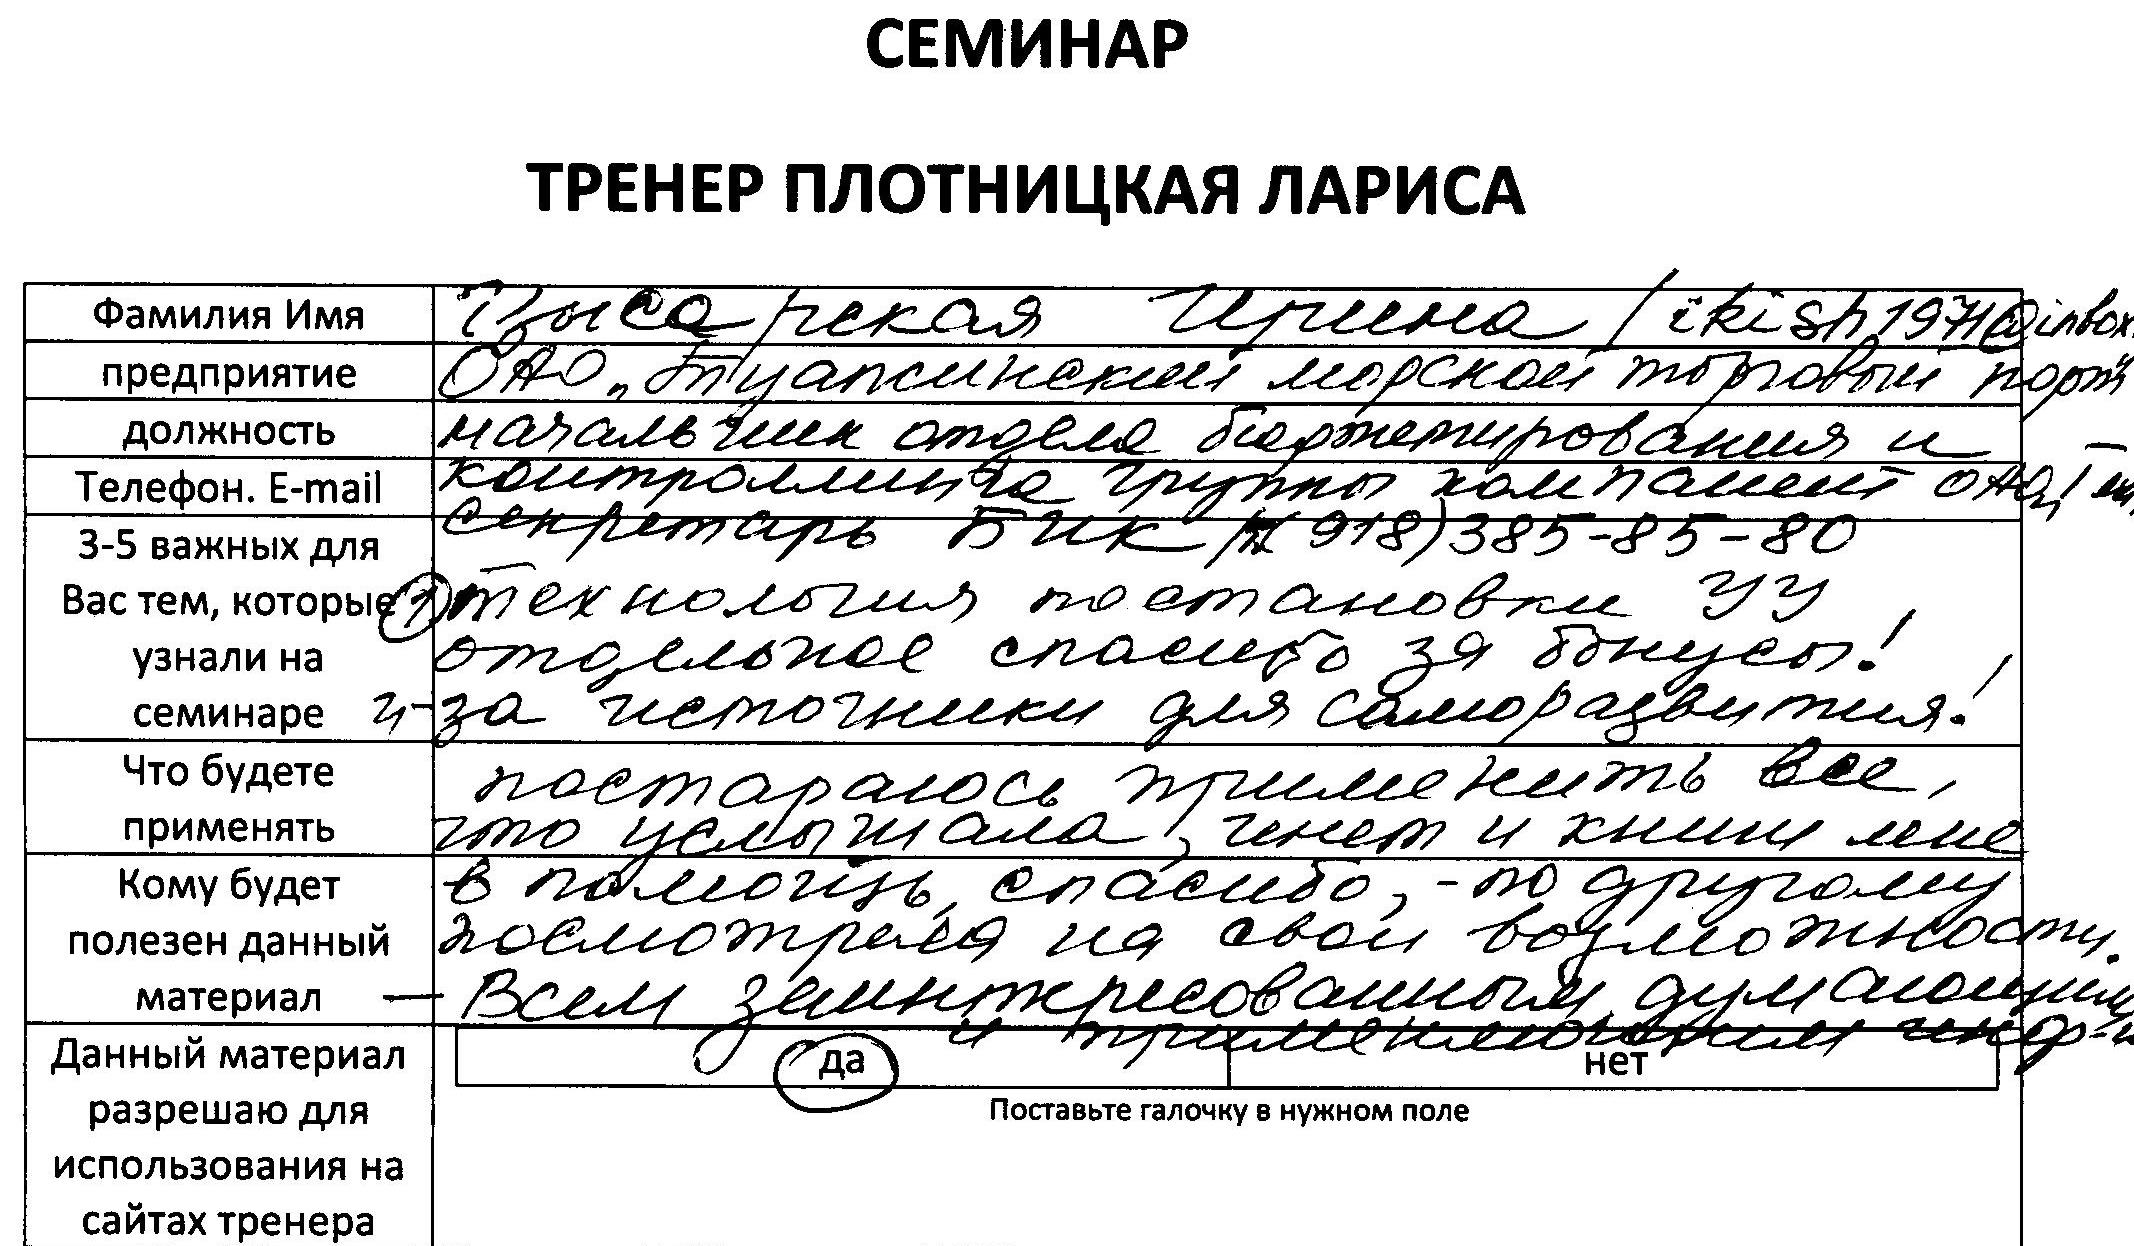 СЕМИНАР
ТРЕНЕР ПЛОТНИЦКАЯ ЛАРИСА
Фамилия Имя Ирина / ikish1971@inbox.
предприятие ОАО „Туапсинский морской торговый порт"
должность начальник отдела бюджетирования и
Телефон. E-mail контроллинга группы компаний ОАО „
секретарь БИК (918)385-85-80
3-5 важных для
Вас тем, которые 1) технология постановки УУ
узнали на отдельное спасибо за бонусы!
семинаре и - за источники для саморазвития!
Что будете постараюсь применить все,
применять что услышала, инет и книги мне
Кому будет в помощь, спасибо, - по другому
полезен данный посмотрела на свои возможности.
материал — Всем заинтересованным, думающим
и применяющим инф-
Данный материал да нет
разрешаю для Поставьте галочку в нужном поле
использования на
сайтах тренера